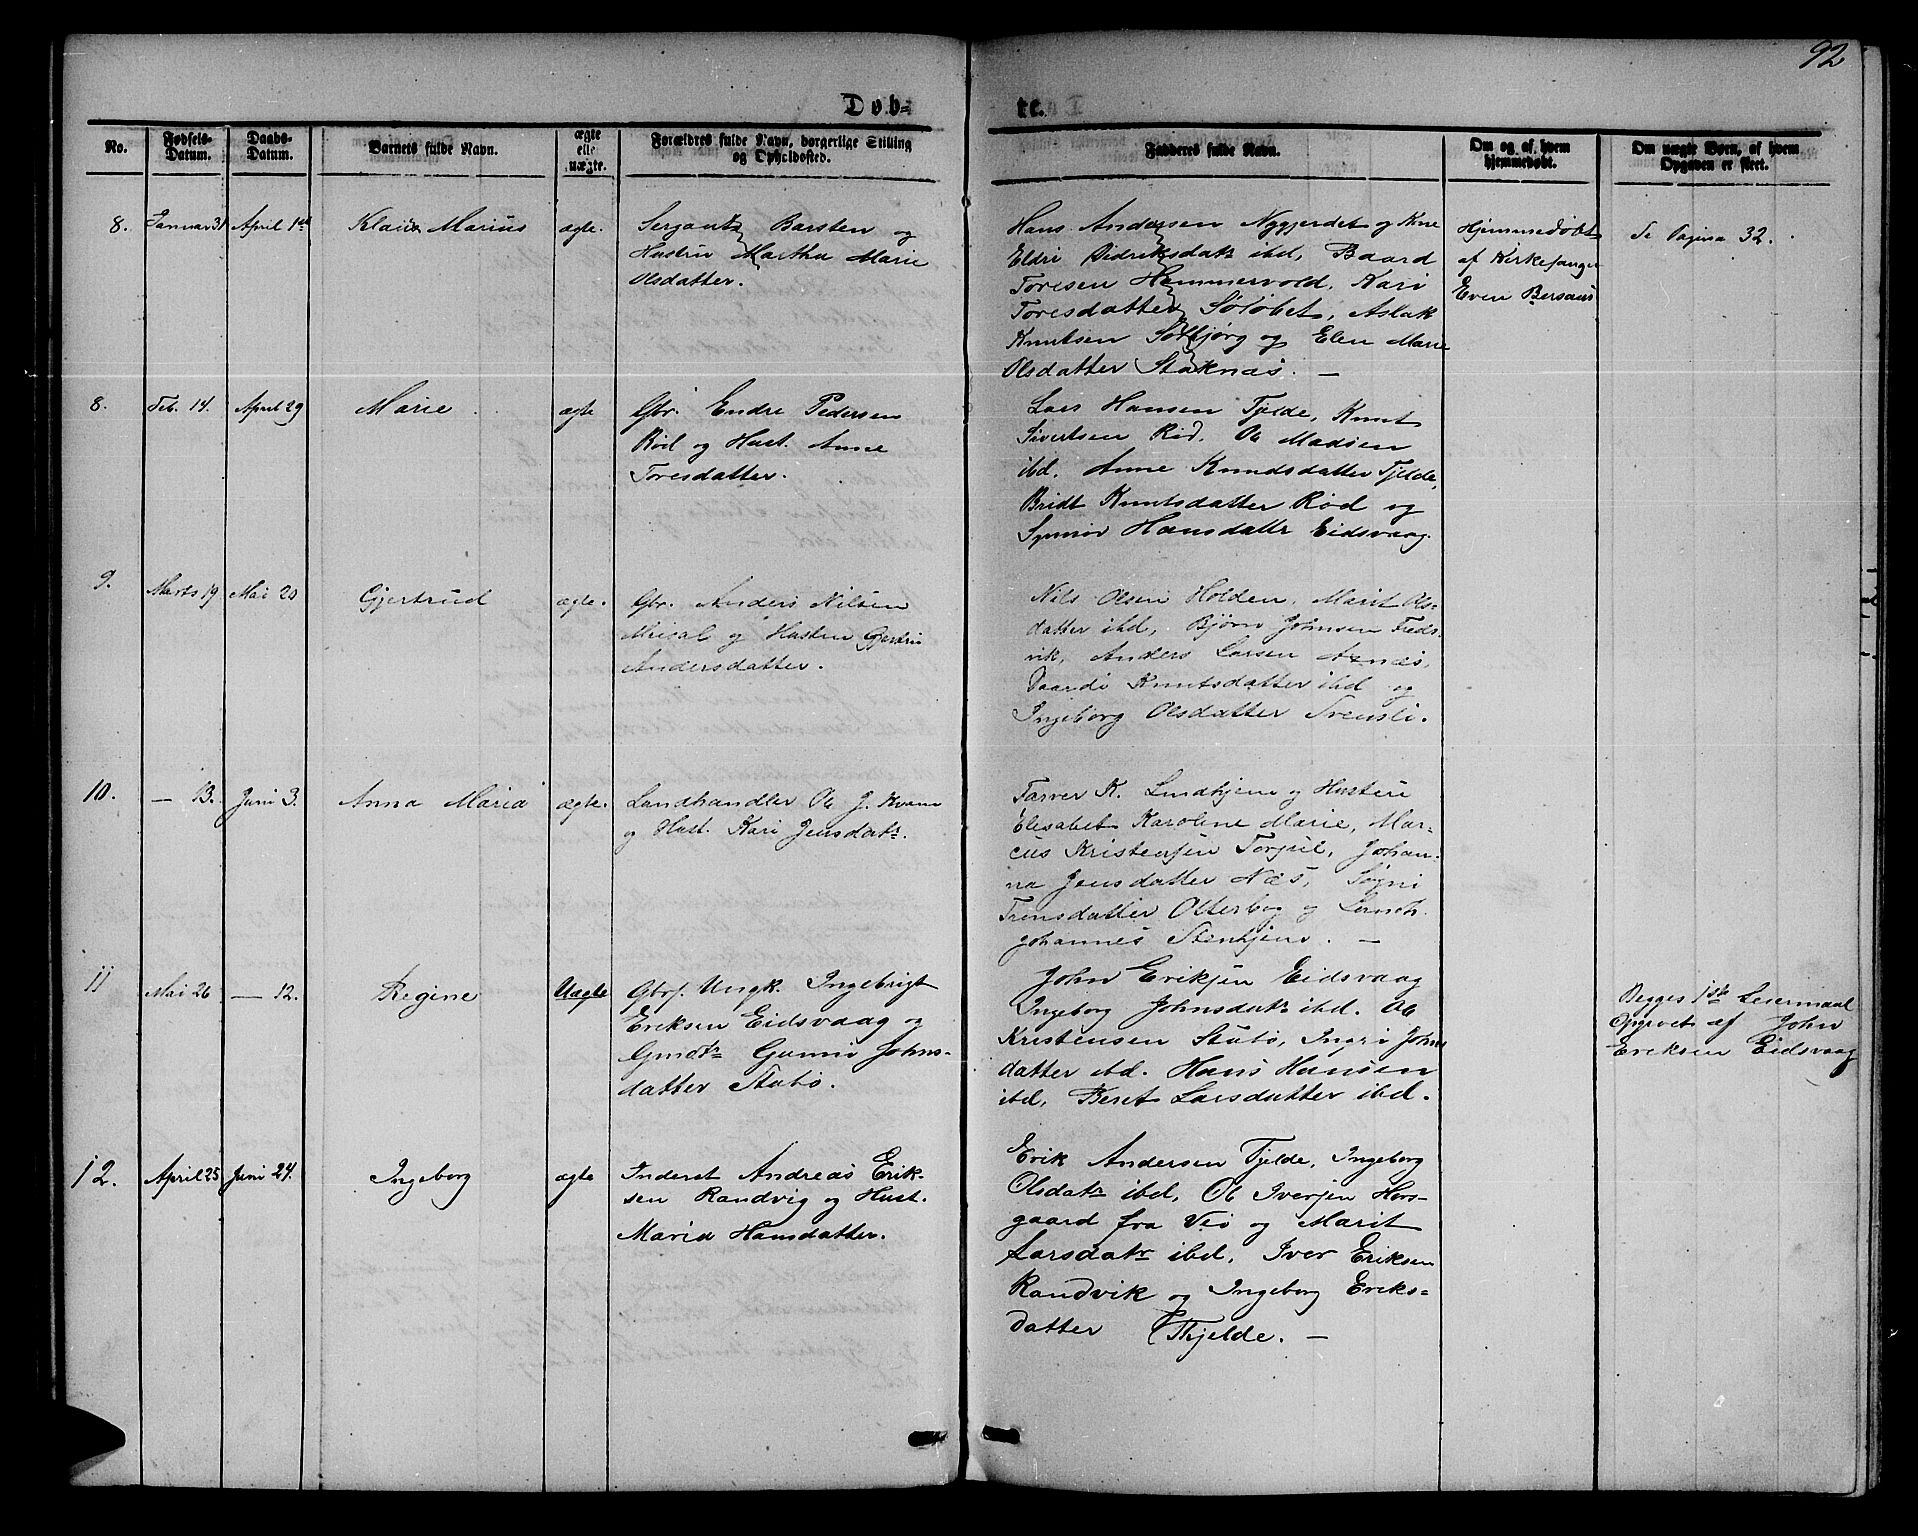 92
Døb-
te.
No.
Fødsels-
Datum.
Daabs-
Datum.
Barnets fulde Navn.
ægte
elle
uægte.
Forældres fulde Navn, borgerlige Stilling
og Opholdssted.
Fadderes fulde Navn.
Om og af hvem
hjemmedøbt.
Om uægte Børn, af hvem
Opgaven er skeet.
8. Januar 31 April 1ste Marius ægte.
Sergant Barsten og
Hustru Martha Marie
Olsdatter.
Hans Andersen Nygjerdet og Kone
Eldri Didriksdatr ibd, Baard
Toresen Hammervold, Kari
Toresdatter Sølsbet, Aslak
Knutsen Solbjørg og Elen Marie
Olsdatter Staknæs. —
Hjemmedøbt
af Kirkesanger
Even Bersaas
Se Pagina 32.
8. Feb. 14. April 29 Marie ægte
Gbr. Endre Pedersen
Rød og Hust. Anne
Toresdatter.
Lars Hansen Tjelde, Knut
Sivertsen Rød. Ole Madsen
ibd. Anne Knudsdatter Tjelde,
Bridt Knutsdatter Rød og
Synnøv Hansdattr Eidsvaag.
9. Marts 19 Mai 20 Gjertrud ægte.
Gbr. Anders Nilsen
Meisal og Hustru Gjertru
Andersdatter.
Nils Olsen Holden, Marit Ols-
datter ibd, Bjørn Johnsen Freds-
vik, Anders Larsen Aznæs,
Baardi Knutsdatter ibd og
Ingeborg Olsdatter Svensli.
10. — 13. Juni 3. Anna Maria ægte.
Landhandler Ole J. Kvam
og Hust. Kari Jensdatr.
Farver K. Lindhjem og Hustru
Elisabet Karoline Marie, Mar-
cus Kristensen Torjul, Johan-
na Jensdatter Næs, Søgni
Trensdatter Otterbeg og
Johannes Stenhjem. —
11 Mai 26 — 12. Regine Uægte
Gbrs. Ungk. Ingebrigt
Eriksen Eidsvaag og
Gmdtr Gunni Johns-
datter Stubø.
John Eriksen Eidsvaag
Ingeborg Johnsdatr ibd. Ole
Kristensen Stubø, Ingri Johns
datter ibd. Hans Hansen
ibd, Beret Larsdatter ibd.
Begges 1ste Leiermaal
Opgivet af John
Eriksen Eidsvaag
12. April 25 Juni 24. Ingeborg ægte
Inderst Andreas Erik-
sen Randvig og Hust.
Maria Hansdatter.
Erik Andersen Tjelde, Ingeborg
Olsdatr ibd, Ole Iversen Hors-
gaard fra Veø og Marit
Larsdatr ibd, Iver Eriksen
Randvik og Ingeborg Eriks-
datter Tkjelde. —